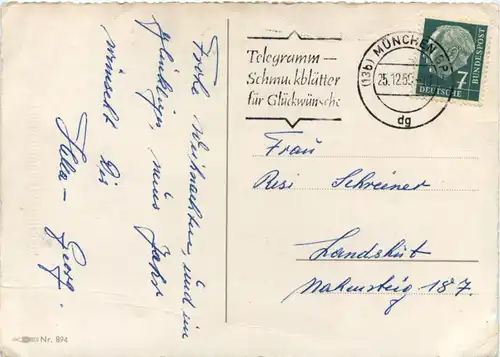 Frohe Weihnachten, und ein
glückliches neues Jahr
wünscht Dir
Georg.
Nr. 894
Telegramm –
Schmuckblätter
für Glückwünsche
(13b) MÜNCHEN
25.12.59
dg
7
DEUTSCHE
BUNDESPOST
Frau
Resi Schreiner
Landshut
187.